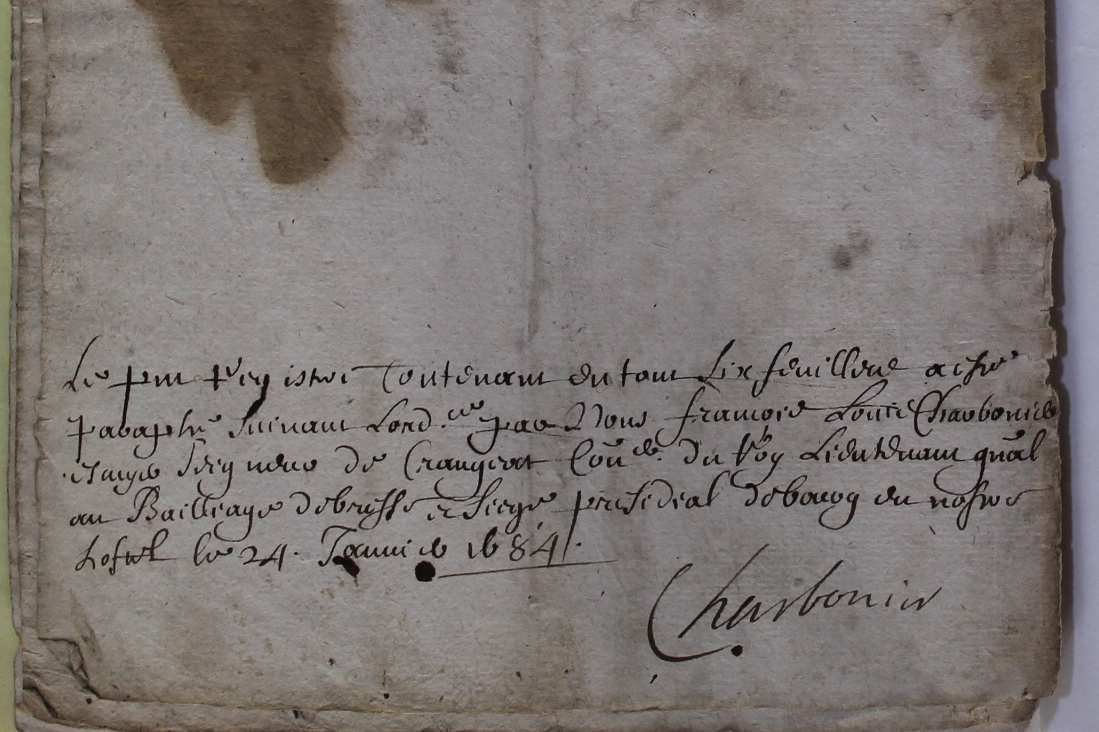 Le pnt Registre Contenant en tout Six feuilletz a esté
paraphé suivant Lord.ce par Nous françois Louis Charbonnier
Seigneur de Crangeat Con.er du Roy Lieutenant gnãl
au Bailliage debresse et siege presidial debourg en nostre
hostel le 24. Janvier 1684.
Charbonier